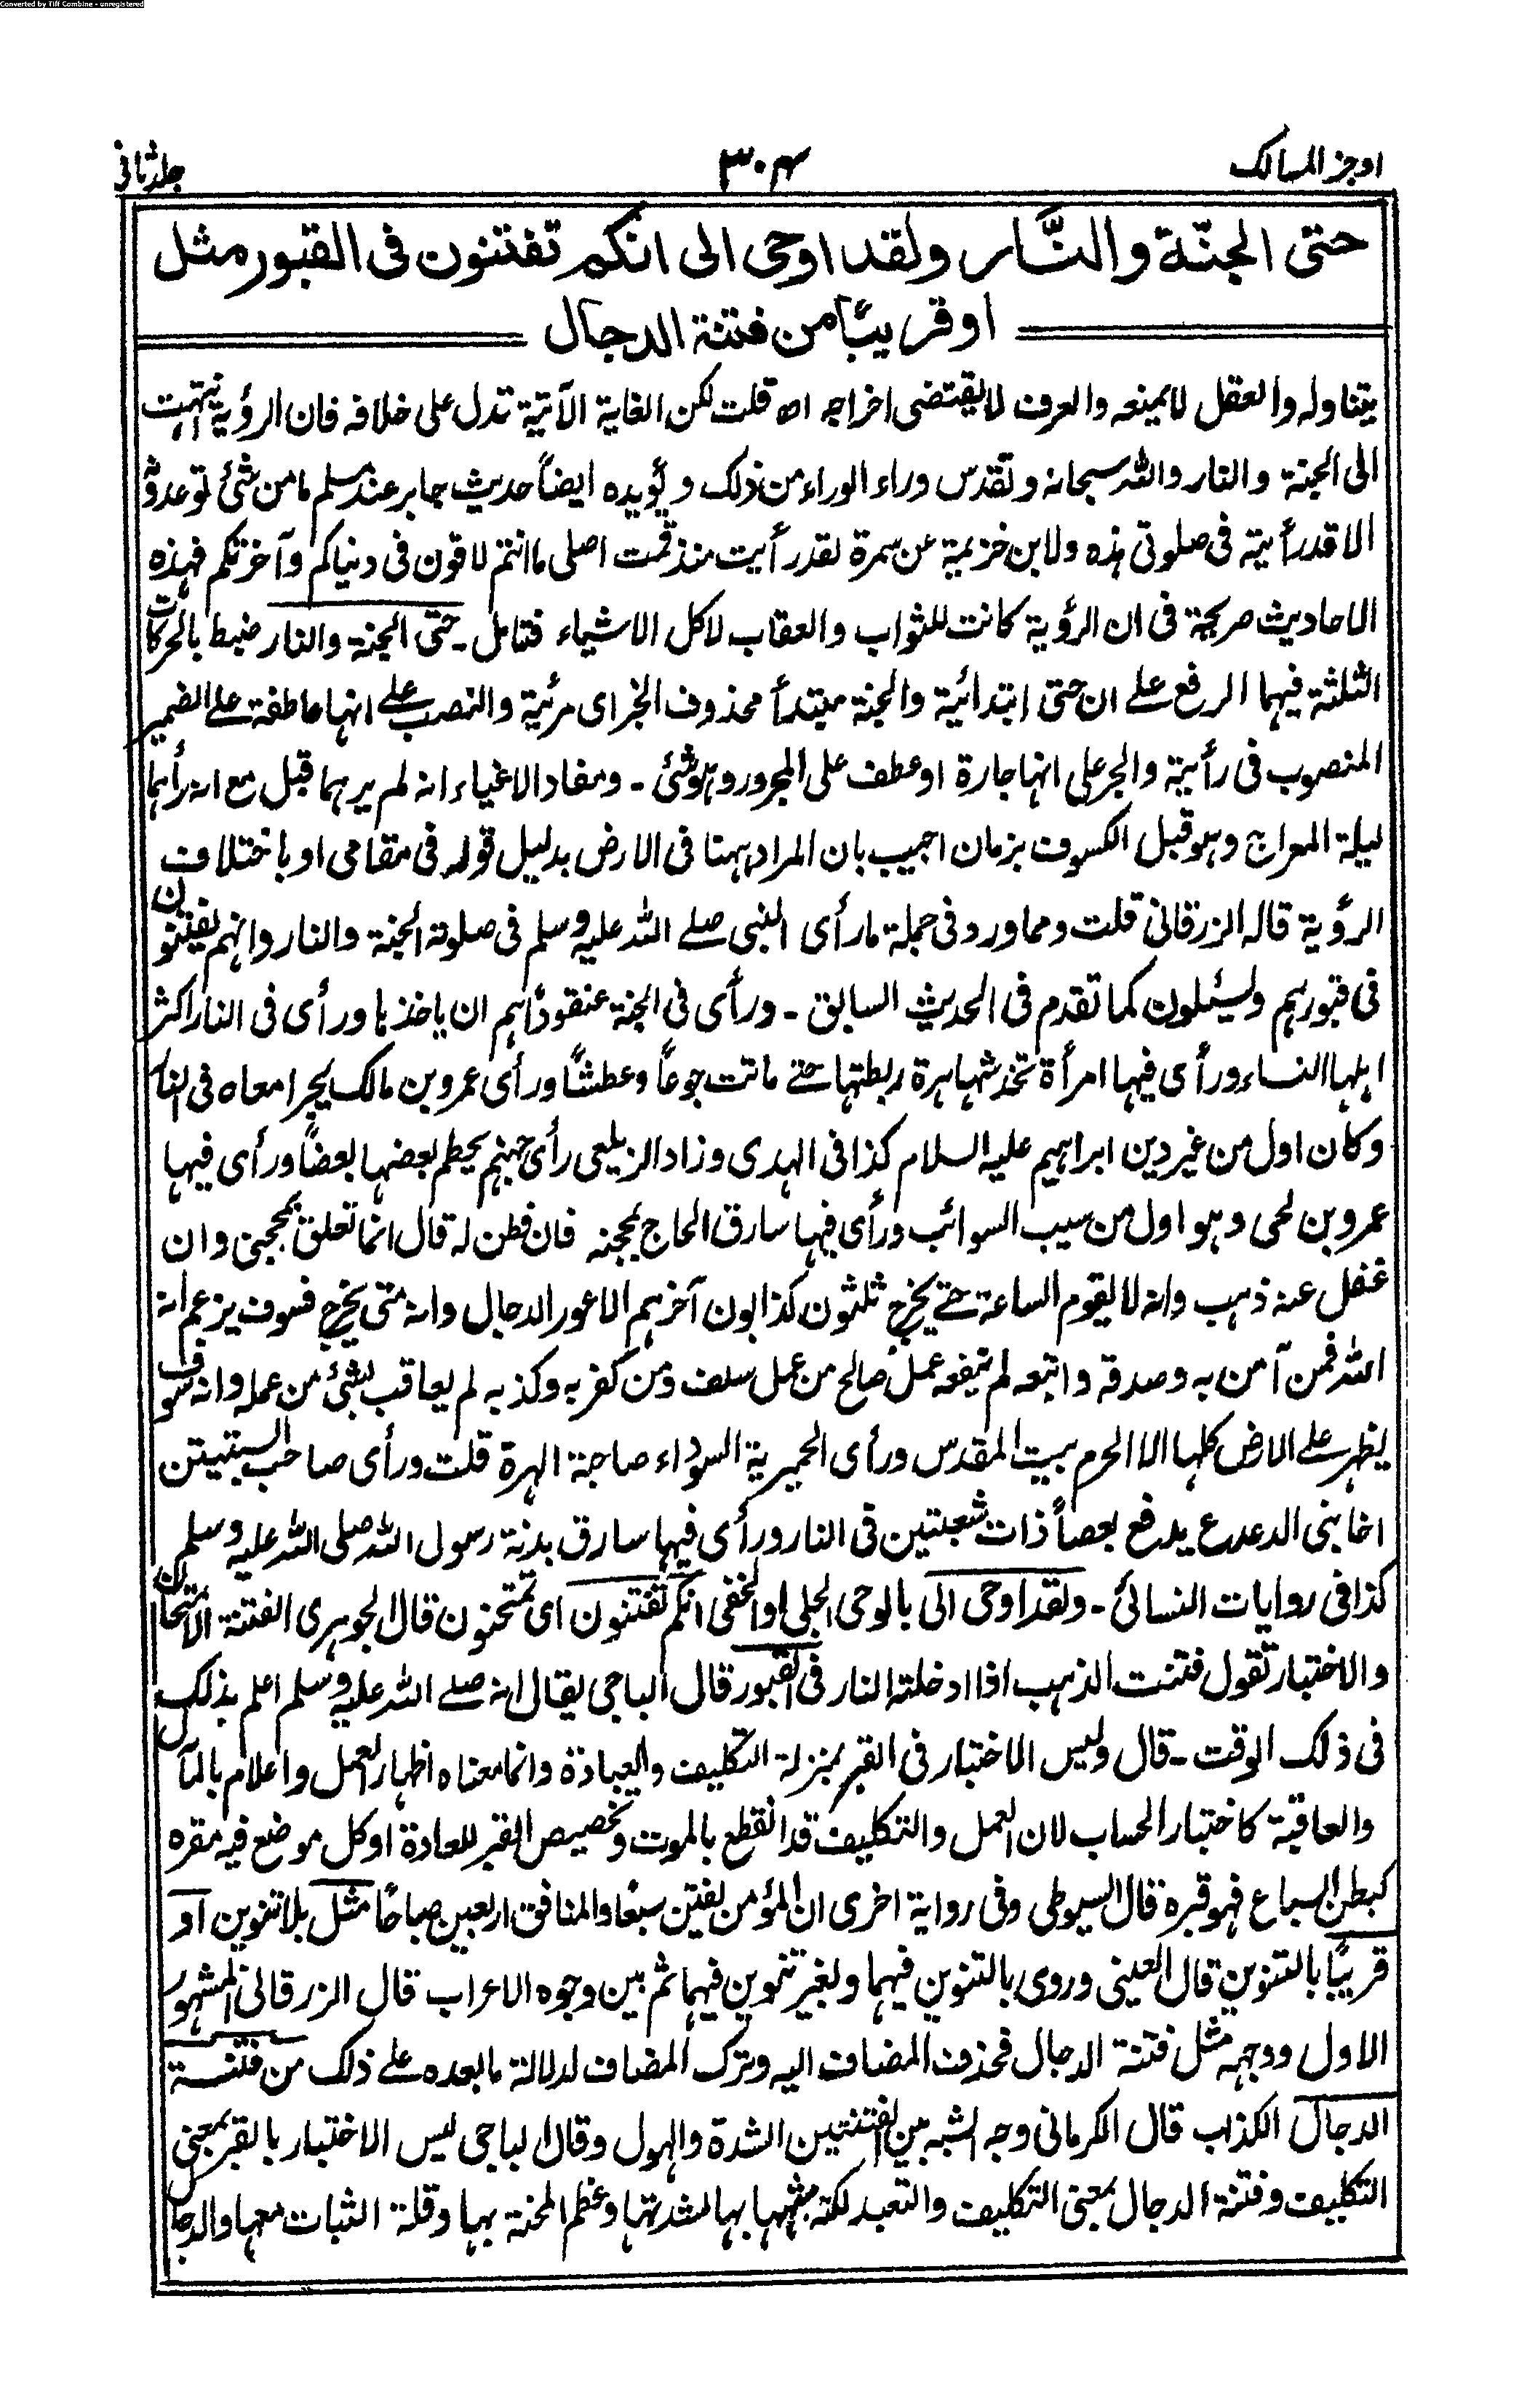 Converted by Tiff Combine - unregistered
اوجز المسالك ٣٠٤ جلد ثانی
حتی الجنّة والنَّار ولقد اوحی الی انكم تفتنون فی القبور مثل
او قریبًا من فتنة الدجال
یتناوله والعقل لا یمنعه والعرف لا یقتضی اخراجه اھ قلت لكن الغایة الآتیة تدل علی خلافه فان الرؤیة انتهت
الی الجنة والنار والله سبحانه وتقدس وراء الوراء من ذلك ویؤیده ایضاً حدیث جابر عند مسلم ما من شئ توعدونه
الا قد رأیته فی صلوتی هذه ولابن خزیمة عن سمرة لقد رأیت منذ قمت اصلی ما انتم لاقون فی دنیاكم وآخرتكم فهذه
الاحادیث صریحة فی ان الرؤیة كانت للثواب والعقاب لا كل الاشیاء فتامل ـ حتی الجنة والنار ضبط بالحركات
الثلثة فیهما الرفع علے ان حتی ابتدائیة والجنة مبتدأ محذوف الخبر ای مرئیة والنصب علے انها عاطفة علے الضمیر
المنصوب فی رأیته والجر علی انها جارة او عطف علی المجرور وهو شئ ـ ومفاد الاغیاء انه لم یرهما قبل مع انه رأهما
لیلة المعراج وهو قبل الكسوف بزمان اجیب بان المراد ههنا فی الارض بدلیل قوله فی مقامی او باختلاف
الرؤیة قاله الزرقانی قلت ومما ورد فی جملة ما رأی النبی صلے الله علیه وسلم فی صلوته الجنة والنار وانهم یفتنون
فی قبورهم ویسئلون كما تقدم فی الحدیث السابق ـ ورأی فی الجنة عنقوداً هم ان یاخذها ورأی فی النار اكثر
اهلها النساء ورأی فیها امرأة تخدشها هرة ربطتها حتے ماتت جوعاً وعطشاً ورأی عمرو بن مالك یجر امعاه فی النار
وكان اول من غیر دین ابراهیم علیه السلام كذا فی الهدی وزاد الزیلعی رأی جهنم یحطم بعضها بعضاً ورأی فیها
عمرو بن لحی وهو اول من سیب السوائب ورأی فیها سارق الحاج بمحجنه فان فطن له قال انما تعلق بمحجنی وان
غفل عنه ذهب وانه لا یقوم الساعة حتے یخرج ثلثون كذابون آخرهم الاعور الدجال وانه متی یخرج فسوف یزعم انه
الله فمن آمن به وصدقه واتبعه لم ینفعه عمل صالح من عمل سلف ومن كفر به وكذبه لم یعاقب بشئ من عمله وانه سوف
یظهر علے الارض كلها الا الحرم بیت المقدس ورأی الحمیریة السوداء صاحبة الهرة قلت ورأی صاحب السبتیتین
اخا بنی الدعدع یدفع بعصاً ذات شعبتین فی النار ورأی فیها سارق بدنة رسول الله صلی الله علیه وسلم
كذا فی روایات النسائی ـ ولقد اوحی الی بالوحی الجلی او الخفی انكم تفتنون ای تمتحنون قال الجوهری الفتنة الامتحان
والاختبار تقول فتنت الذهب اذا ادخلته النار فی القبور قال الباجی یقال انه صلے الله علیه وسلم اعلم بذلك
فی ذلك الوقت ـ قال ولیس الاختبار فی القبر بمنزلة التكلیف والعبادة وانما معناه اظهار العمل واعلام بالمآل
والعاقبة كاختبار الحساب لان العمل والتكلیف قد انقطع بالموت وتخصیص القبر للعادة او كل موضع فیه مقره
كبطن السباع فهو قبره قال السیوطی وفی روایة اخری ان المؤمن یفتن سبعًا والمنافق اربعین صباحًا مثل بلا تنوین او
قریبًا بالتنوین قال العینی وروی بالتنوین فیهما وبغیر تنوین فیهما ثم بین وجوه الاعراب قال الزرقانی المشهور
الاول ووجهه مثل فتنة الدجال فحذف المضاف الیه وترك المضاف لدلالة ما بعده علے ذلك من فتنة
الدجال الكذاب قال الكرمانی وجه الشبه بین الفتنتین الشدة والهول وقال الباجی لیس الاختبار بالقبر بمعنی
التكلیف وفتنة الدجال بمعنی التكلیف والتعبد لكنه شبهها بها لشدتها وعظم المحنة بها وقلة الثبات معها والدجال